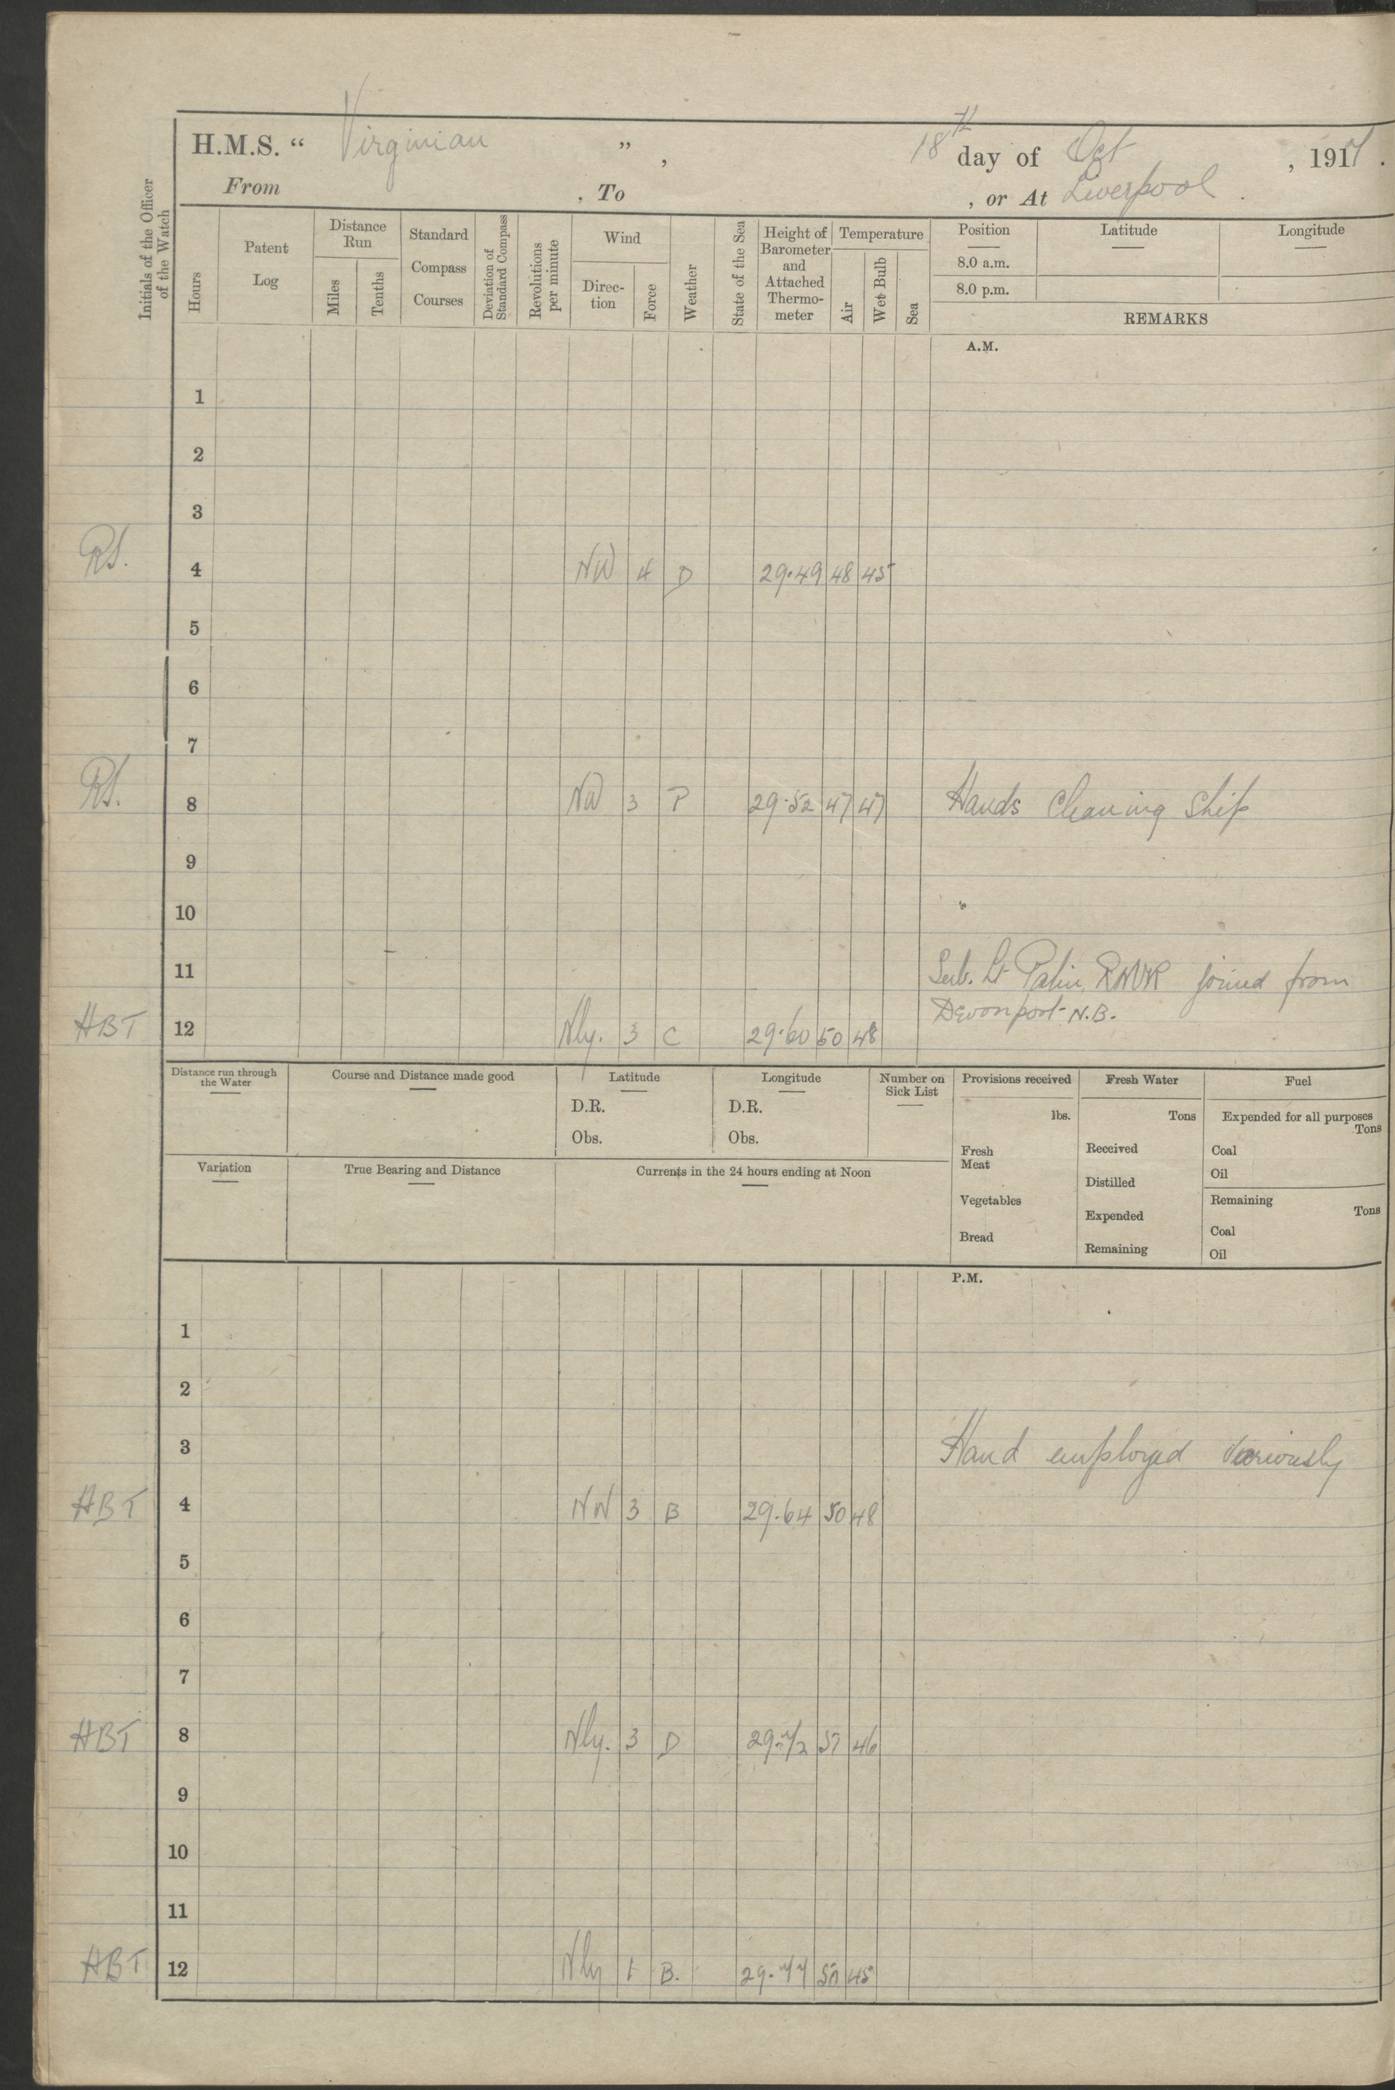 H.M.S. “ Virginian ” , 18th day of Oct , 1917 .
From , To , or At Liverpool .
Initials of the Officer of the Watch
Hours
Patent Log
Distance Run
Miles
Tenths
Standard Compass Courses
Deviation of Standard Compass
Revolutions per minute
Wind
Direc-tion
Force
Weather
State of the Sea
Height of Barometer and Attached Thermo-meter
Temperature
Air
Wet Bulb
Sea
Position Latitude Longitude
8.0 a.m.
8.0 p.m.
REMARKS
A.M.
1
2
3
RS. 4 NW 4 D 29.49 48 45
5
6
7
RS. 8 NW 3 P 29.52 47 47 Hands Cleaning Ship
9
10
11 Sub. Lt RNVR joined from
Devonport N.B.
HBT 12 Nly. 3 C 29.60 50 48
Distance run through the Water
Course and Distance made good
Latitude
D.R.
Obs.
Longitude
D.R.
Obs.
Number on Sick List
Provisions received
lbs.
Fresh Meat
Vegetables
Bread
Fresh Water
Tons
Received
Distilled
Expended
Remaining
Fuel
Expended for all purposes
Tons
Coal
Oil
Remaining
Tons
Coal
Oil
Variation
True Bearing and Distance
Currents in the 24 hours ending at Noon
P.M.
1
2
3 Hand employed variously
HBT 4 NW 3 B 29.64 50 48
5
6
7
HBT 8 Nly. 3 D 29.72 46
9
10
11
HBT 12 Nly 1 B. 29.77 45